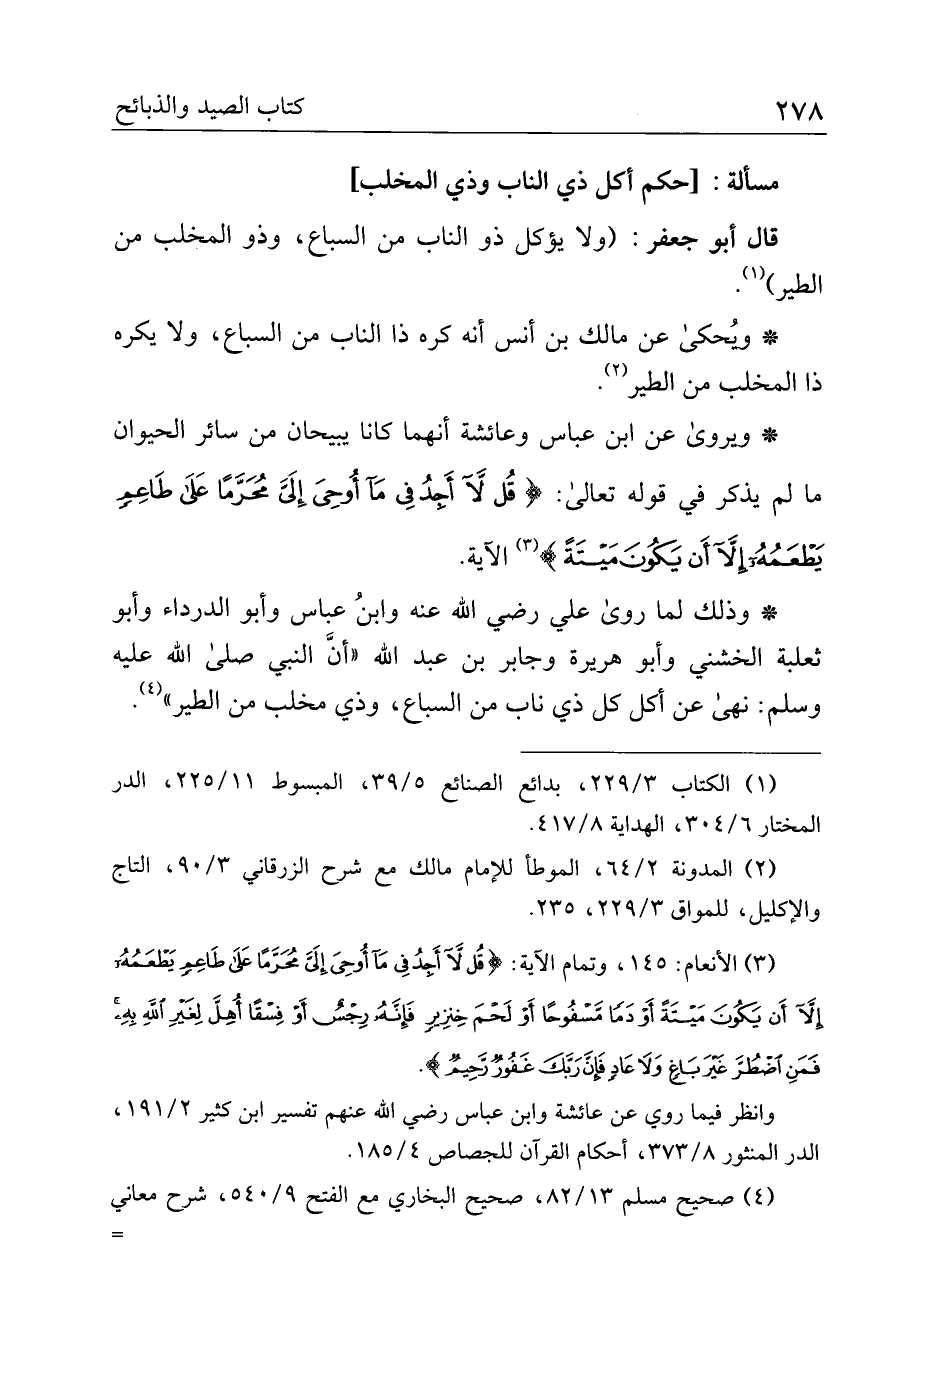 ٢٧٨ كتاب الصيد والذبائح
مسألة : [حكم أكل ذي الناب وذي المخلب]
قال أبو جعفر : (ولا يؤكل ذو الناب من السباع، وذو المخلب من
الطير)(١).
* ويُحكىٰ عن مالك بن أنس أنه كره ذا الناب من السباع، ولا يكره
ذا المخلب من الطير(٢).
* ويروىٰ عن ابن عباس وعائشة أنهما كانا يبيحان من سائر الحيوان
ما لم يذكر في قوله تعالىٰ: ﴿ قُل لَّآ أَجِدُ فِى مَآ أُوحِىَ إِلَىَّ مُحَرَّمًا عَلَىٰ طَاعِمٍ
يَطْعَمُهُۥٓ إِلَّآ أَن يَكُونَ مَيْتَةً ﴾(٣) الآية.
* وذلك لما روىٰ علي رضي الله عنه وابنُ عباس وأبو الدرداء وأبو
ثعلبة الخشني وأبو هريرة وجابر بن عبد الله «أنَّ النبي صلىٰ الله عليه
وسلم: نهىٰ عن أكل كل ذي ناب من السباع، وذي مخلب من الطير»(٤).
(١) الكتاب ٢٢٩/٣، بدائع الصنائع ٣٩/٥، المبسوط ٢٢٥/١١، الدر
المختار ٣٠٤/٦، الهداية ٤١٧/٨.
(٢) المدونة ٦٤/٢، الموطأ للإمام مالك مع شرح الزرقاني ٩٠/٣، التاج
والإكليل، للمواق ٢٢٩/٣، ٢٣٥.
(٣) الأنعام: ١٤٥، وتمام الآية: ﴿ قُل لَّآ أَجِدُ فِى مَآ أُوحِىَ إِلَىَّ مُحَرَّمًا عَلَىٰ طَاعِمٍ يَطْعَمُهُۥٓ
إِلَّآ أَن يَكُونَ مَيْتَةً أَوْ دَمًا مَّسْفُوحًا أَوْ لَحْمَ خِنزِيرٍ فَإِنَّهُۥ رِجْسٌ أَوْ فِسْقًا أُهِلَّ لِغَيْرِ ٱللَّهِ بِهِۦۚ
فَمَنِ ٱضْطُرَّ غَيْرَ بَاغٍ وَلَا عَادٍ فَإِنَّ رَبَّكَ غَفُورٌ رَّحِيمٌ ﴾.
وانظر فيما روي عن عائشة وابن عباس رضي الله عنهم تفسير ابن كثير ١٩١/٢،
الدر المنثور ٣٧٣/٨، أحكام القرآن للجصاص ١٨٥/٤.
(٤) صحيح مسلم ٨٢/١٣، صحيح البخاري مع الفتح ٥٤٠/٩، شرح معاني
=